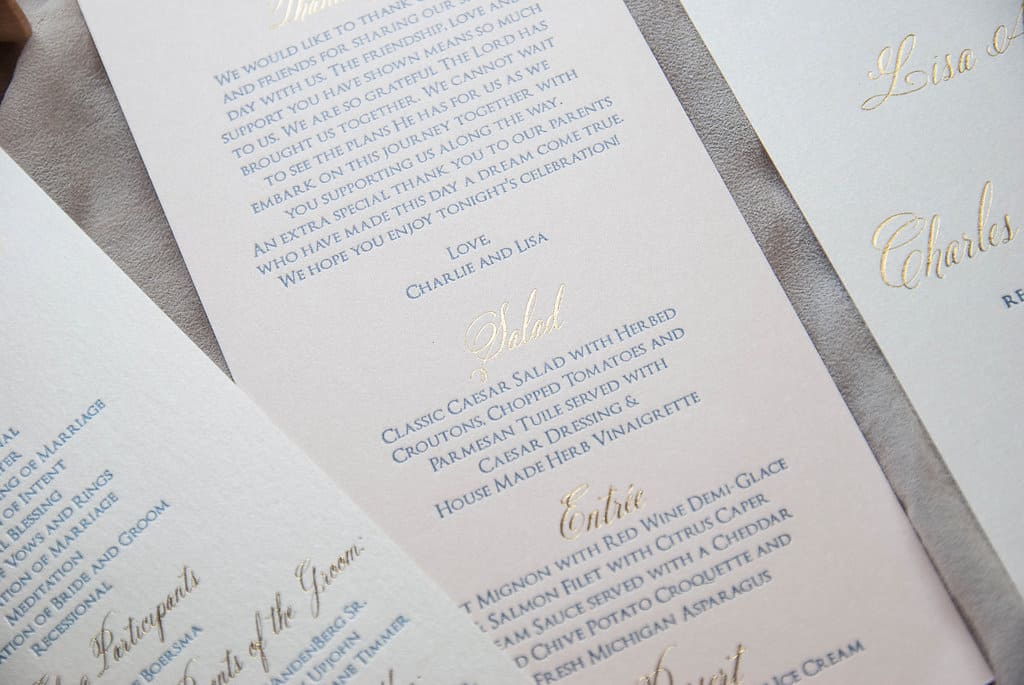 We would like to thank
and friends for sharing our
day with us. The friendship, love and
support you have shown means so much
to us. We are so grateful The Lord has
brought us together. We cannot wait
to see the plans He has for us as we
embark on this journey together with
you supporting us along the way.
An extra special thank you to our parents
who have made this day a dream come true.
We hope you enjoy tonight's celebration!
Love,
Charlie and Lisa
Salad
Classic Caesar Salad with Herbed
Croutons, Chopped Tomatoes and
Parmesan Tuile served with
Caesar Dressing &
House Made Herb Vinaigrette
Entrée
Mignon with Red Wine Demi-Glace
Salmon Filet with Citrus Caper
Sauce served with a Cheddar
Chive Potato Croquette and
Fresh Michigan Asparagus
Ice Cream
of Marriage
of Intent
Blessing
Vows and Rings
of Marriage
Meditation
of Bride and Groom
Recessional
Participants
Boersma
of the Groom:
Sr.
Upjohn
Timmer
Lisa
Charles